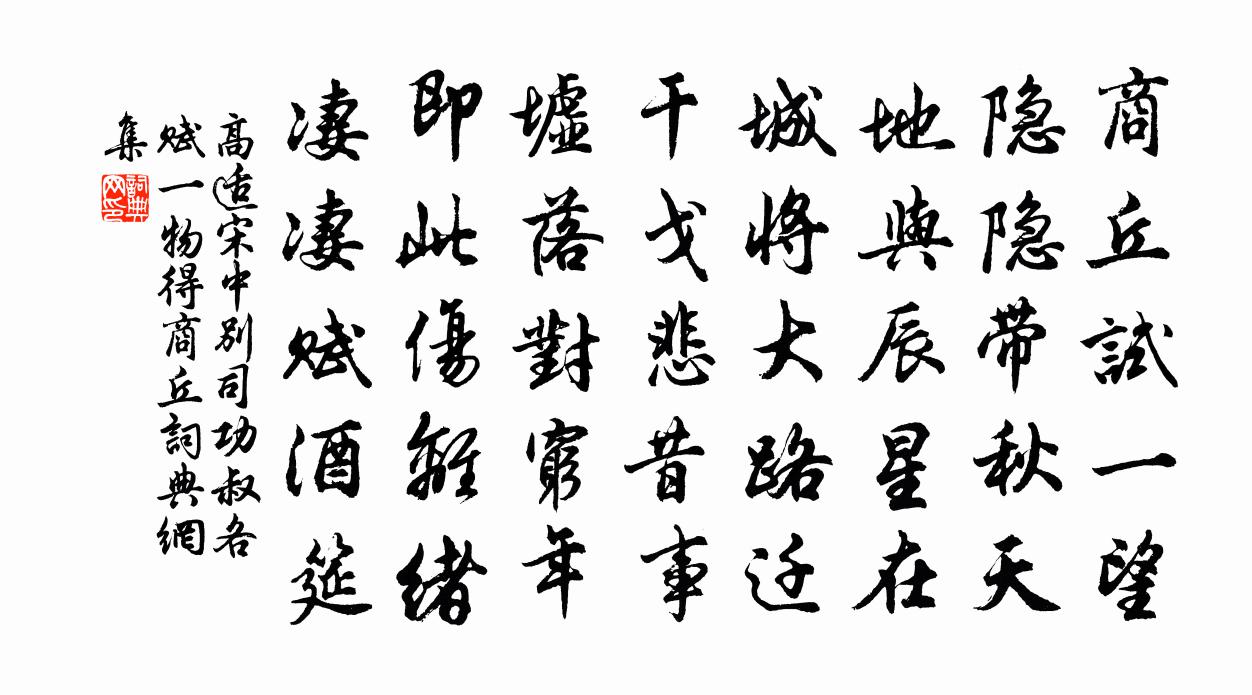 商丘試一望
隐隐带秋天
地與辰星在
城將大路迁
干戈悲昔事
墟落對窮年
即此傷離緒
凄凄赋酒筵
高适宋中别司功叔各
赋一物得商丘詞典網
集
詞典网印